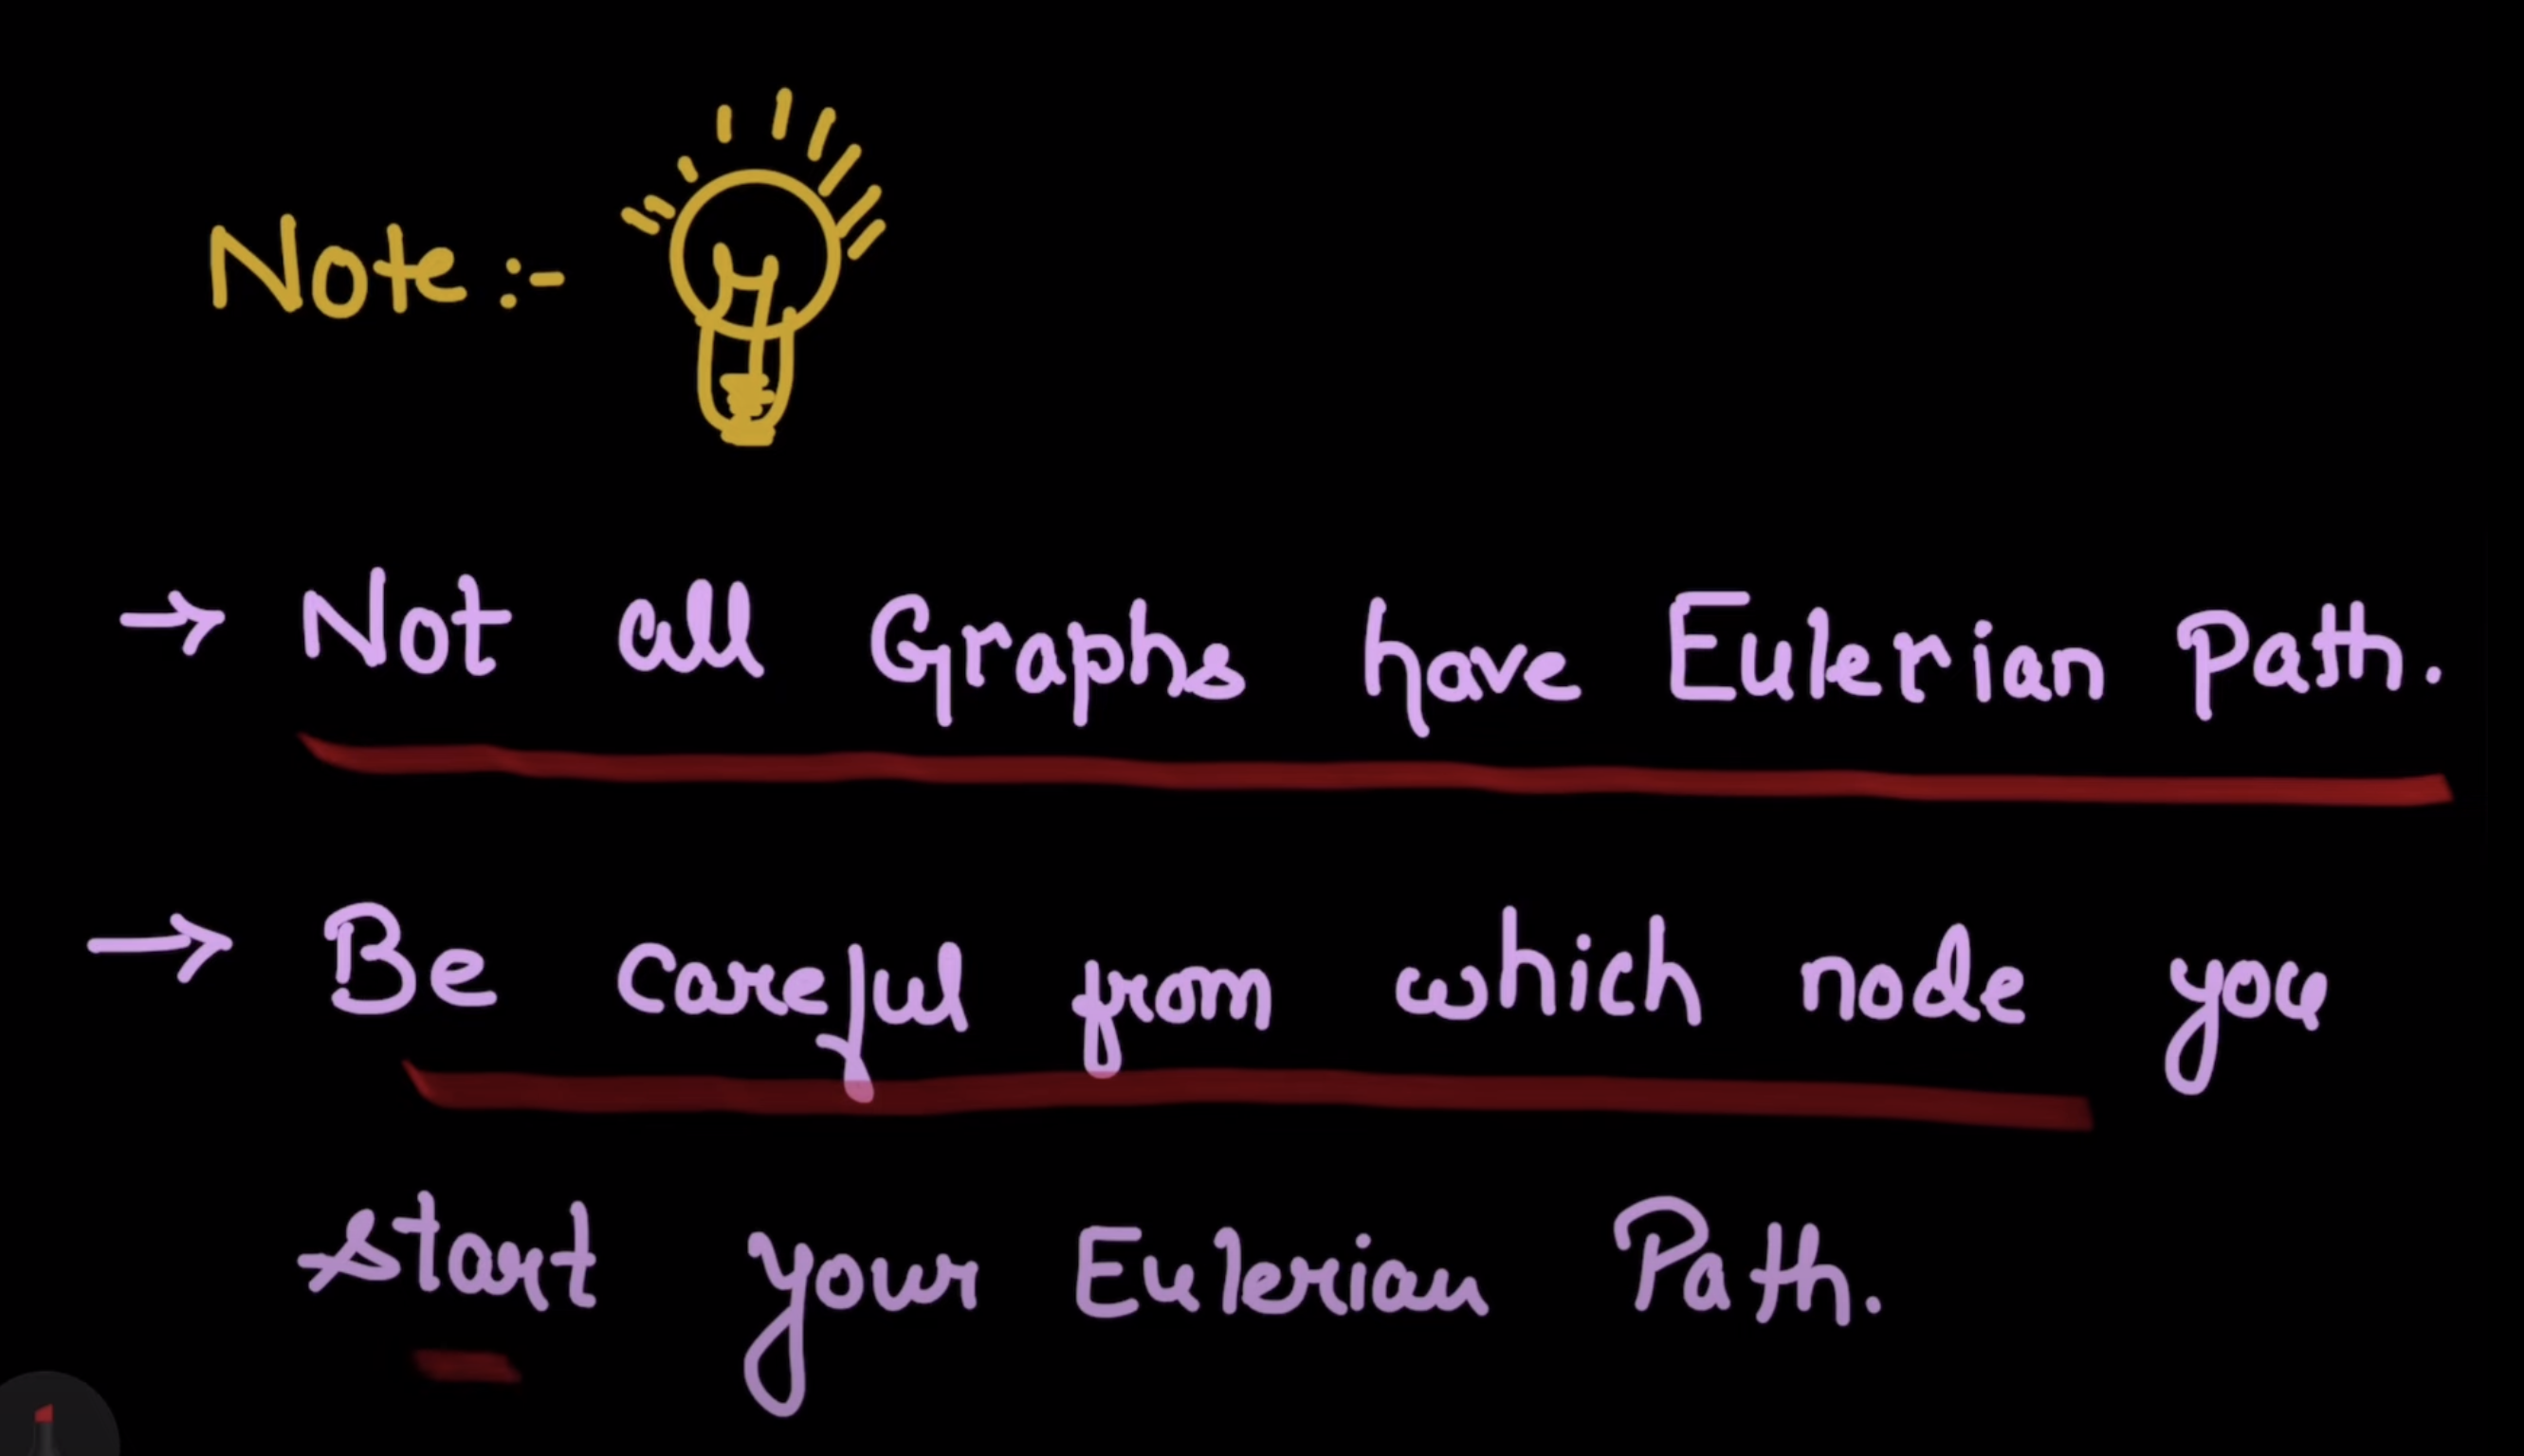 Note :-
→ Not all Graphs have Eulerian Path.
→ Be careful from which node you
start your Eulerian Path.